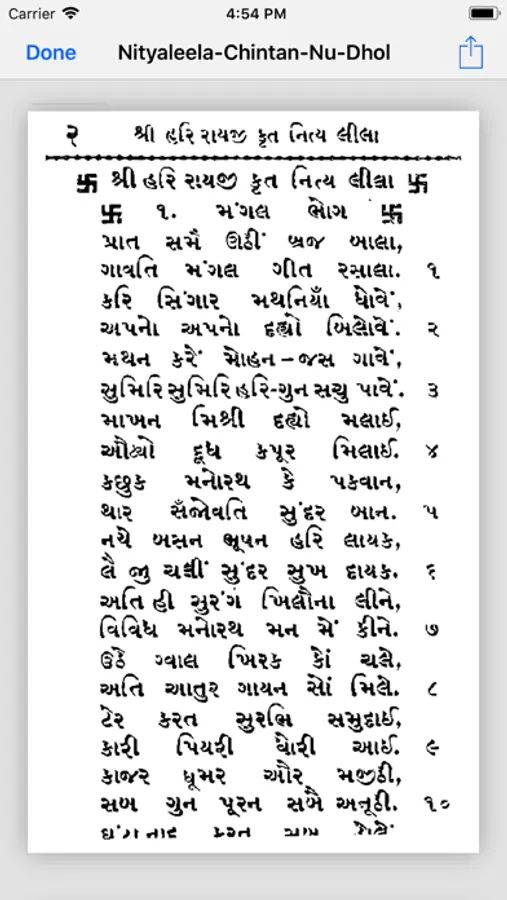 Carrier 4:54 PM
Done Nityaleela-Chintan-Nu-Dhol
૨ શ્રી હરિ રાયજી કૃત નિત્ય લીલા
卐 શ્રી હરિ રાયજી કૃત નિત્ય લીલા 卐
卐 ૧. મંગલ ભોગ 卐
પ્રાત સમૈ ઊઠીં બ્રજ બાલા,
ગાવતિ મંગલ ગીત રસાલા. ૧
કરિ સિંગાર મથનિયાઁ ધોવેં,
અપનો અપનો દહ્યો બિલોવેં. ૨
મથન કરેં મોહન–જસ ગાવેં,
સુમિરિ સુમિરિ હરિ-ગુન સચુ પાવેં. ૩
માખન મિશ્રી દહ્યો મલાઈ,
ઔટ્યો દૂધ કપૂર મિલાઈ. ૪
કછુક મનોરથ કે પકવાન,
થાર સઁજોવતિ સુંદર બાન. ૫
નયે બસન ભૂષન હરિ લાયક,
લૈ જુ ચલીં સુંદર સુખ દાયક. ૬
અતિ હી સુરંગ ખિલૌના લીને,
વિવિધ મનોરથ મન મેં કીને. ૭
ઉઠે ગ્વાલ ખિરક કોં ચલે,
અતિ આતુર ગાયન સોં મિલે. ૮
ટેર કરત સુરભિ સમુદાઈ,
કારી પિયરી ધોરી આઈ. ૯
કાજર ધૂમર ઔર મજીઠી,
સબ ગુન પૂરન સબૈ અનૂઠી. ૧૦